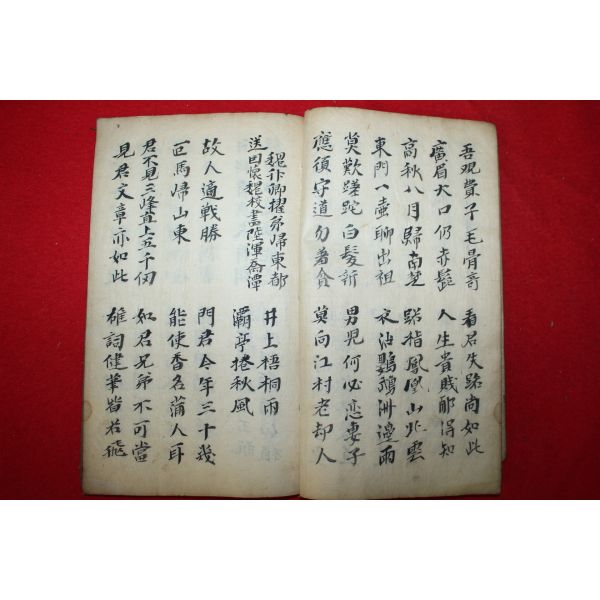 吾观費子毛骨奇
廣眉大口仍赤髭
看君失路尚如此
人生貴賤那得知
高秋八月歸南楚
東門一壺聊出祖
路指鳳凰山北雲
衣沾鸚鵡洲邊雨
莫歎蹉跎白髮新
應須守道勿羞貧
男児何必恋妻子
莫向江村老却人
魏升卿擢第帰東都
送因懷魏校書陸渾喬潭
井上梧桐雨
灞亭捲秋風
故人適戰勝
匹馬帰山東
門君今年三十幾
能使香名蒲人耳
君不見三峰直上五千仞
見君文章亦如此
如君兄弟不可當
雄詞健筆皆若飛